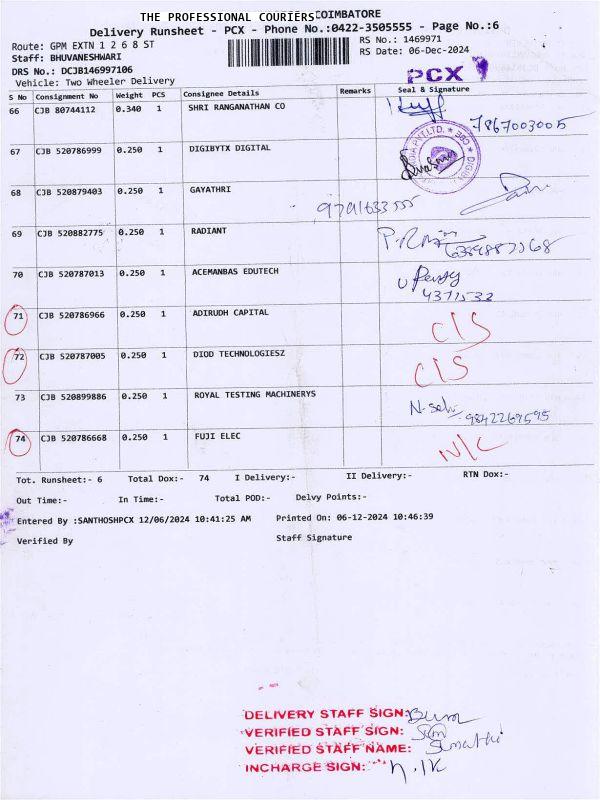 THE PROFESSIONAL COURIERS COIMBATORE
Delivery Runsheet - PCX - Phone No.:0422-3505555 - Page No.:6
Route: GPM EXTN 1 2 6 8 ST
RS No.: 1469971
Staff: BHUVANESHWARI
RS Date: 06-Dec-2024
DRS No.: DCJB146997106
Vehicle: Two Wheeler Delivery
PCX
S No Consignment No Weight PCS Consignee Details Remarks Seal & Signature
66 CJB 80744112 0.340 1 SHRI RANGANATHAN CO
7867003005
67 CJB 520786999 0.250 1 DIGIBYTX DIGITAL
68 CJB 520879403 0.250 1 GAYATHRI
9791633555
69 CJB 520882775 0.250 1 RADIANT
70 CJB 520787013 0.250 1 ACEMANBAS EDUTECH
4371532
71 CJB 520786966 0.250 1 ADIRUDH CAPITAL C/S
72 CJB 520787005 0.250 1 DIOD TECHNOLOGIESZ C/S
73 CJB 520899886 0.250 1 ROYAL TESTING MACHINERYS
9842269595
74 CJB 520786668 0.250 1 FUJI ELEC N/C
Tot. Runsheet:- 6 Total Dox:- 74 I Delivery:- II Delivery:- RTN Dox:-
Out Time:- In Time:- Total POD:- Delvy Points:-
Entered By :SANTHOSHPCX 12/06/2024 10:41:25 AM Printed On: 06-12-2024 10:46:39
Verified By Staff Signature
DELIVERY STAFF SIGN:
VERIFIED STAFF SIGN:
VERIFIED STAFF NAME: Sumathi
INCHARGE SIGN: